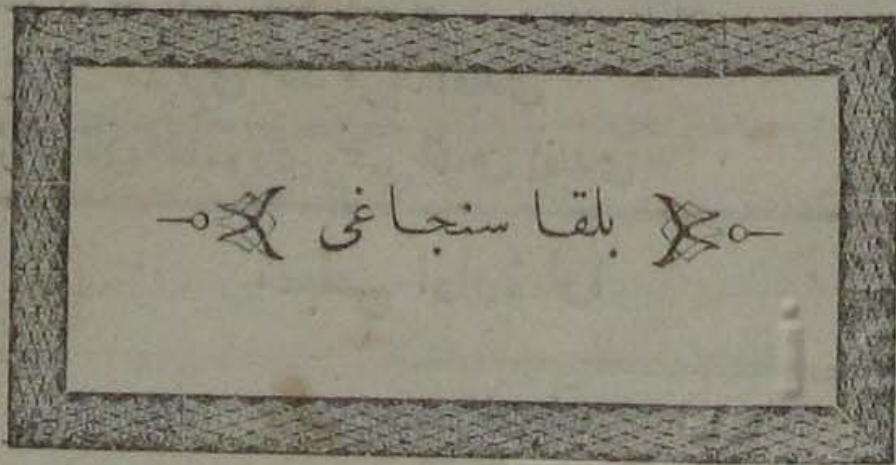 بلقا سنجاغی